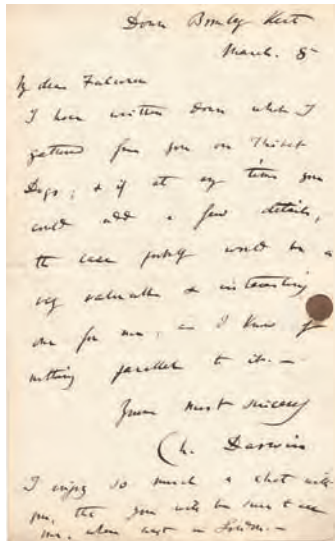 Down Bromley Kent
March. 8
My dear Falconer
I have written down what I
gathered from you on Thibet
Dogs; & if at any time you
could add a few details,
the case would be a
very valuable & interesting
one for me; as I know of
nothing parallel to it.—
Yours most sincerely
Ch. Darwin
I enjoy so much a chat with
you, that you will be sure to see
me, when next in London.—